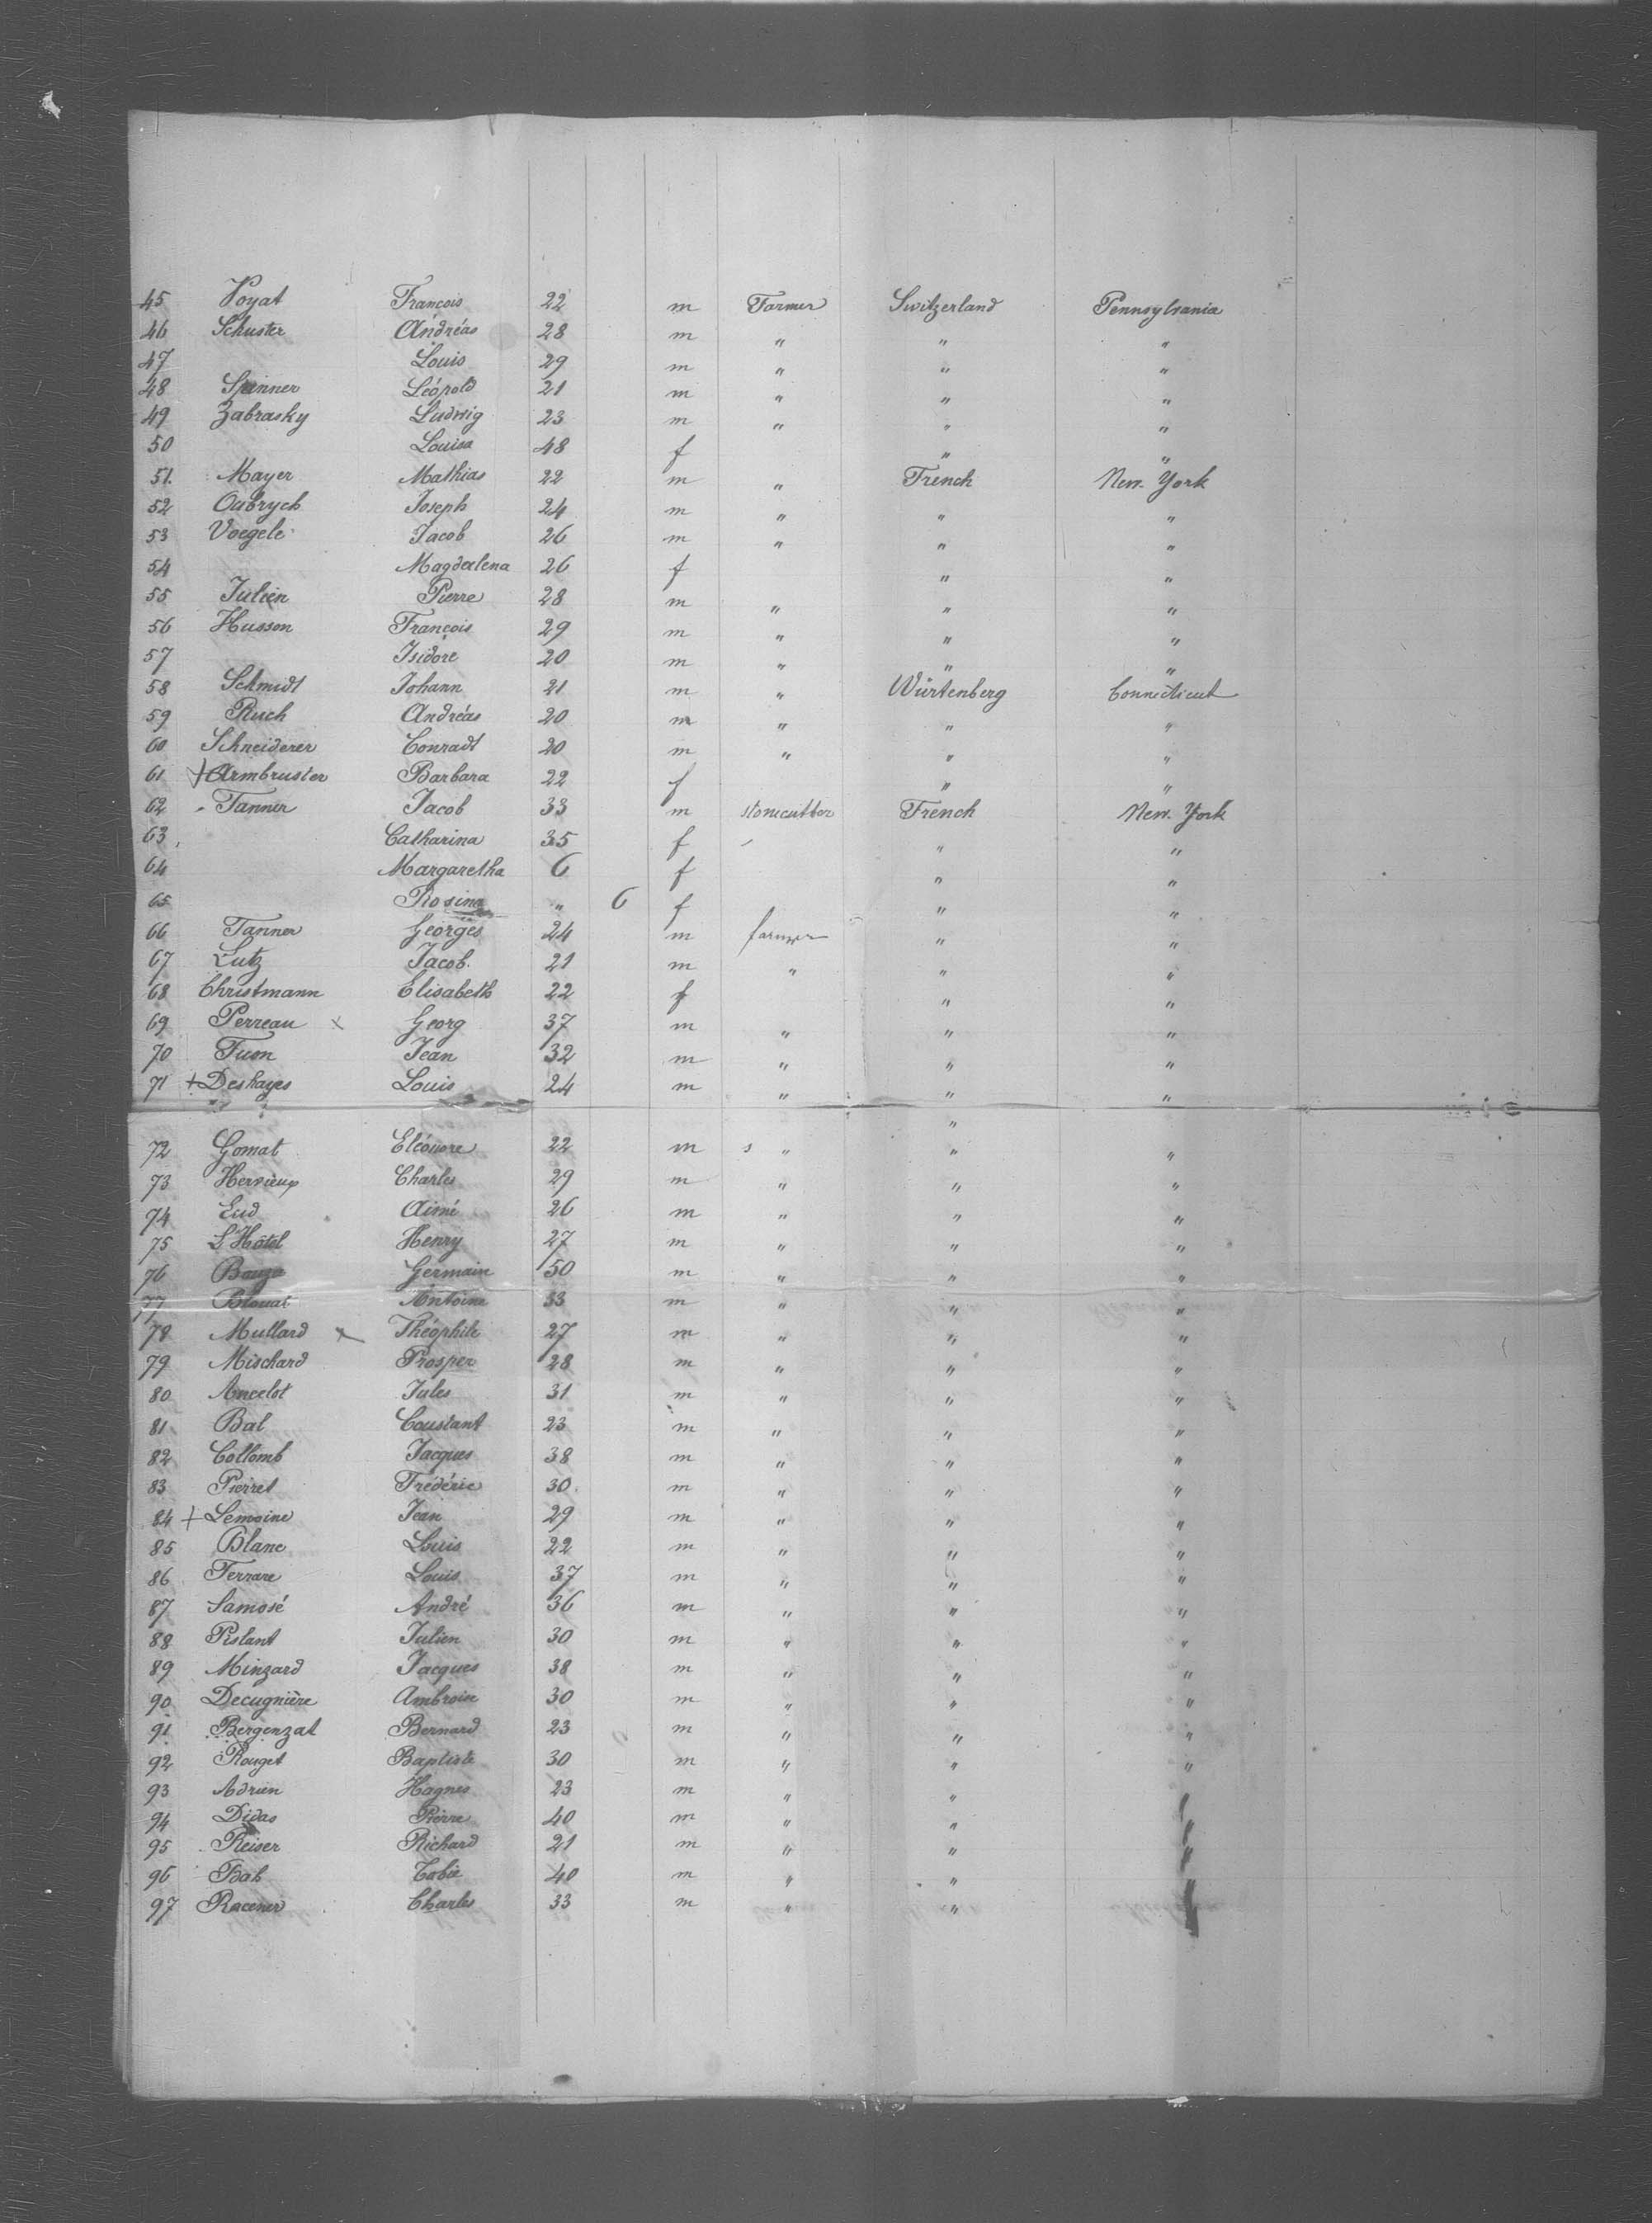 45 Voyat François 22 m Farmer Switzerland Pennsylvania
46 Schuster Andréas 28 m " " "
47 Louis 29 m " " "
48 Spinner Léopold 21 m " " "
49 Zabrasky Ludwig 23 m " " "
50 Louisa 48 f " "
51. Mayer Mathias 22 m " French New-York
52 Oubrych Joseph 24 m " " "
53 Voegele Jacob 26 m " " "
54 Magdalena 26 f " "
55 Julien Pierre 28 m " " "
56 Husson François 29 m " " "
57 Isidore 20 m " " "
58 Schmidt Johann 21 m " Würtenberg Connecticut
59 Ruch Andréas 20 m " " "
60 Schneiderer Conradt 20 m " " "
61 + Armbruster Barbara 22 f " "
62 - Tanner Jacob 33 m stonecutter French New-York
63 Catharina 35 f " "
64 Margaretha 6 f " "
65 Rosina " 6 f " "
66 Tanner Georges 24 m farmer " "
67 Lutz Jacob. 21 m " " "
68 Christmann Elisabeth 22 f " "
69 Perreau x Georg 37 m " " "
70 Tum Jean 32 m " " "
71 + Deshayes Louis 24 m " " "
"
72 Gomat Eléonore 22 m s " " "
73 Hervieux Charles 29 m " " "
74 Eud Aimé 26 m " " "
75 L'Hôtel Henry 27 m " " "
76 Bouze Germain 50 m " " "
77 Blouat Antoine 33 m " " "
78 Mullard x Théophile 27 m " " "
79 Mischard Prosper 28 m " " "
80 Ancelot Jules 31 m " " "
81 Bal Constant 23 m " " "
82 Collomb Jacques 38 m " " "
83 Pierret Frédéric 30. m " " "
84 + Lemoine Jean 29 m " " "
85 Blanc Louis 22 m " " "
86 Ferrare Louis 37 m " " "
87 Samosé André 36 m " " "
88 Pislant Julien 30 m " " "
89 Minzard Jacques 38 m " " "
90 Decugnière Ambroise 30 m " " "
91 Bergenzat Bernard 23 m " " "
92 Rouget Baptiste 30 m " " "
93 Adrien Hagnes 23 m " "
94 Didas Pierre 40 m " "
95 Reiser Richard 21 m " "
96 Bah Tobie 40 m " "
97 Racener Charles 33 m " "